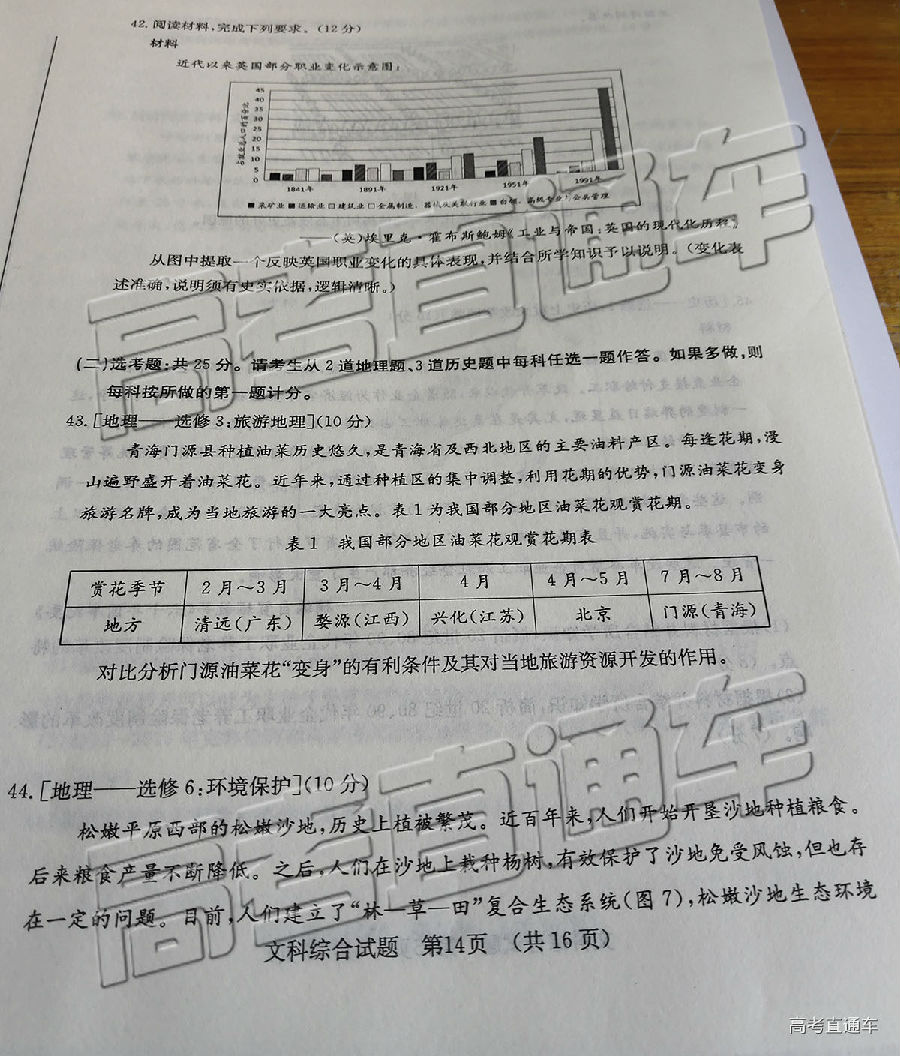 42. 阅读材料,完成下列要求。(12分)
材料
近代以来英国部分职业变化示意图:
45
40
35
30
25
20
15
10
5
0
1841年 1891年 1921年 1951年 1991年
采矿业 运输业 建筑业 金属制造、
(英)埃里克·霍布斯鲍姆《工业与帝国:英国的现代化历程》
从图中提取一个反映英国职业变化的具体表现,并结合所学知识予以说明。(变化表
述准确,说明须有史实依据,逻辑清晰。)
(二)选考题:共25分。请考生从2道地理题、3道历史题中每科任选一题作答。如果多做,则
每科按所做的第一题计分。
43. [地理——选修3:旅游地理](10分)
青海门源县种植油菜历史悠久,是青海省及西北地区的主要油料产区。每逢花期,漫
山遍野盛开着油菜花。近年来,通过种植区的集中调整,利用花期的优势,门源油菜花变身
旅游名牌,成为当地旅游的一大亮点。表1为我国部分地区油菜花观赏花期。
表1 我国部分地区油菜花观赏花期表
赏花季节 2月~3月 3月~4月 4月 4月~5月 7月~8月
地方 清远(广东) 婺源(江西) 兴化(江苏) 北京 门源(青海)
对比分析门源油菜花“变身”的有利条件及其对当地旅游资源开发的作用。
44. [地理——选修6:环境保护](10分)
松嫩平原西部的松嫩沙地,历史上植被繁茂。近百年来,人们开始开垦沙地种植粮食。
后来粮食产量不断降低。之后,人们在沙地上栽种杨树,有效保护了沙地免受风蚀,但也存
在一定的问题。目前,人们建立了“林—草—田”复合生态系统(图7),松嫩沙地生态环境
文科综合试题 第14页 (共16页)
高考直通车
高考直通车
高考直通车